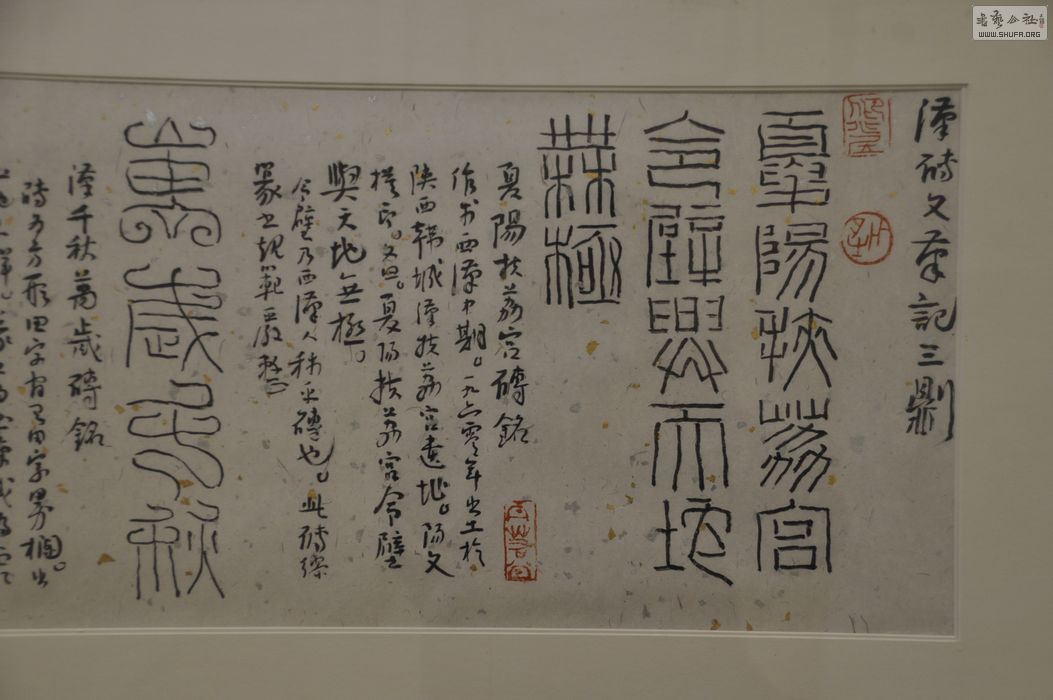 漢磚文筆記三則
夏陽扶荔宮
令壁與天地
無極
夏陽扶荔宮磚銘
作於西漢中期。一九六零年出土於
陝西韓城漢扶荔宮遺址。陽文
模印。文曰。夏陽扶荔宮令壁
與天地無極。
令壁乃西漢人稱乎磚也。此磚繆
篆書規範嚴整
萬歲千秋
漢千秋萬歲磚銘
磚為方形田字田字界欄。出
書藝公社
WWW.SHUFA.ORG